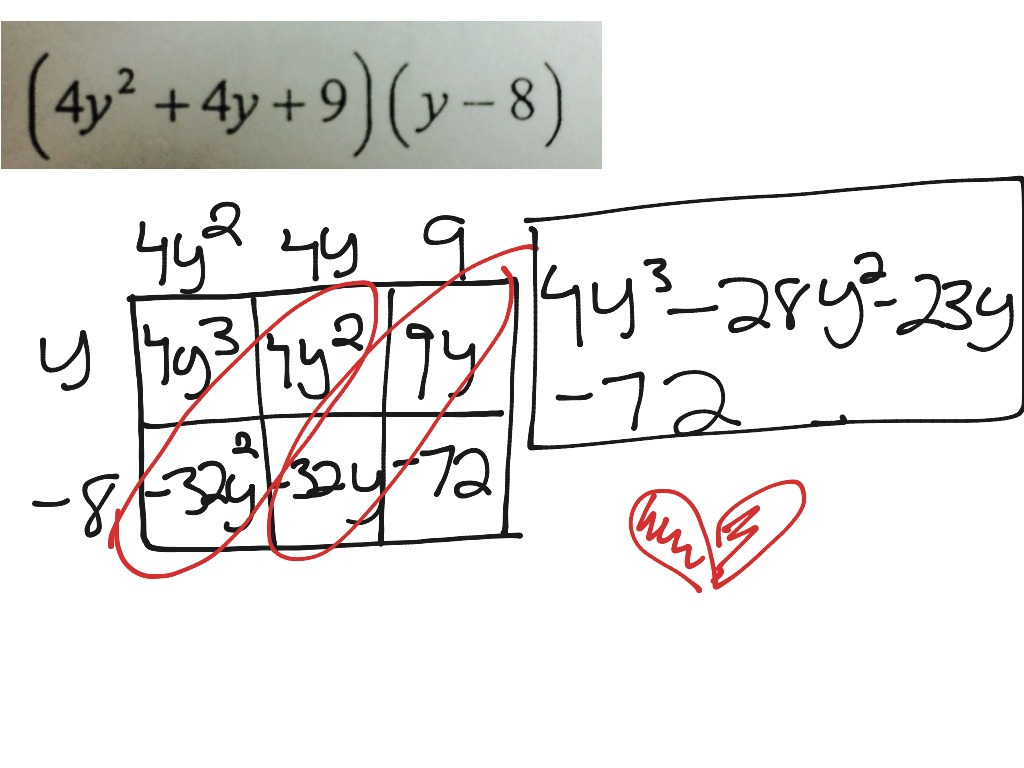 (4y² + 4y + 9)(y − 8)
4y² 4y 9
y 4y³ 4y² 9y
-8 -32y² -32y -72
4y³ - 28y² - 23y
-72